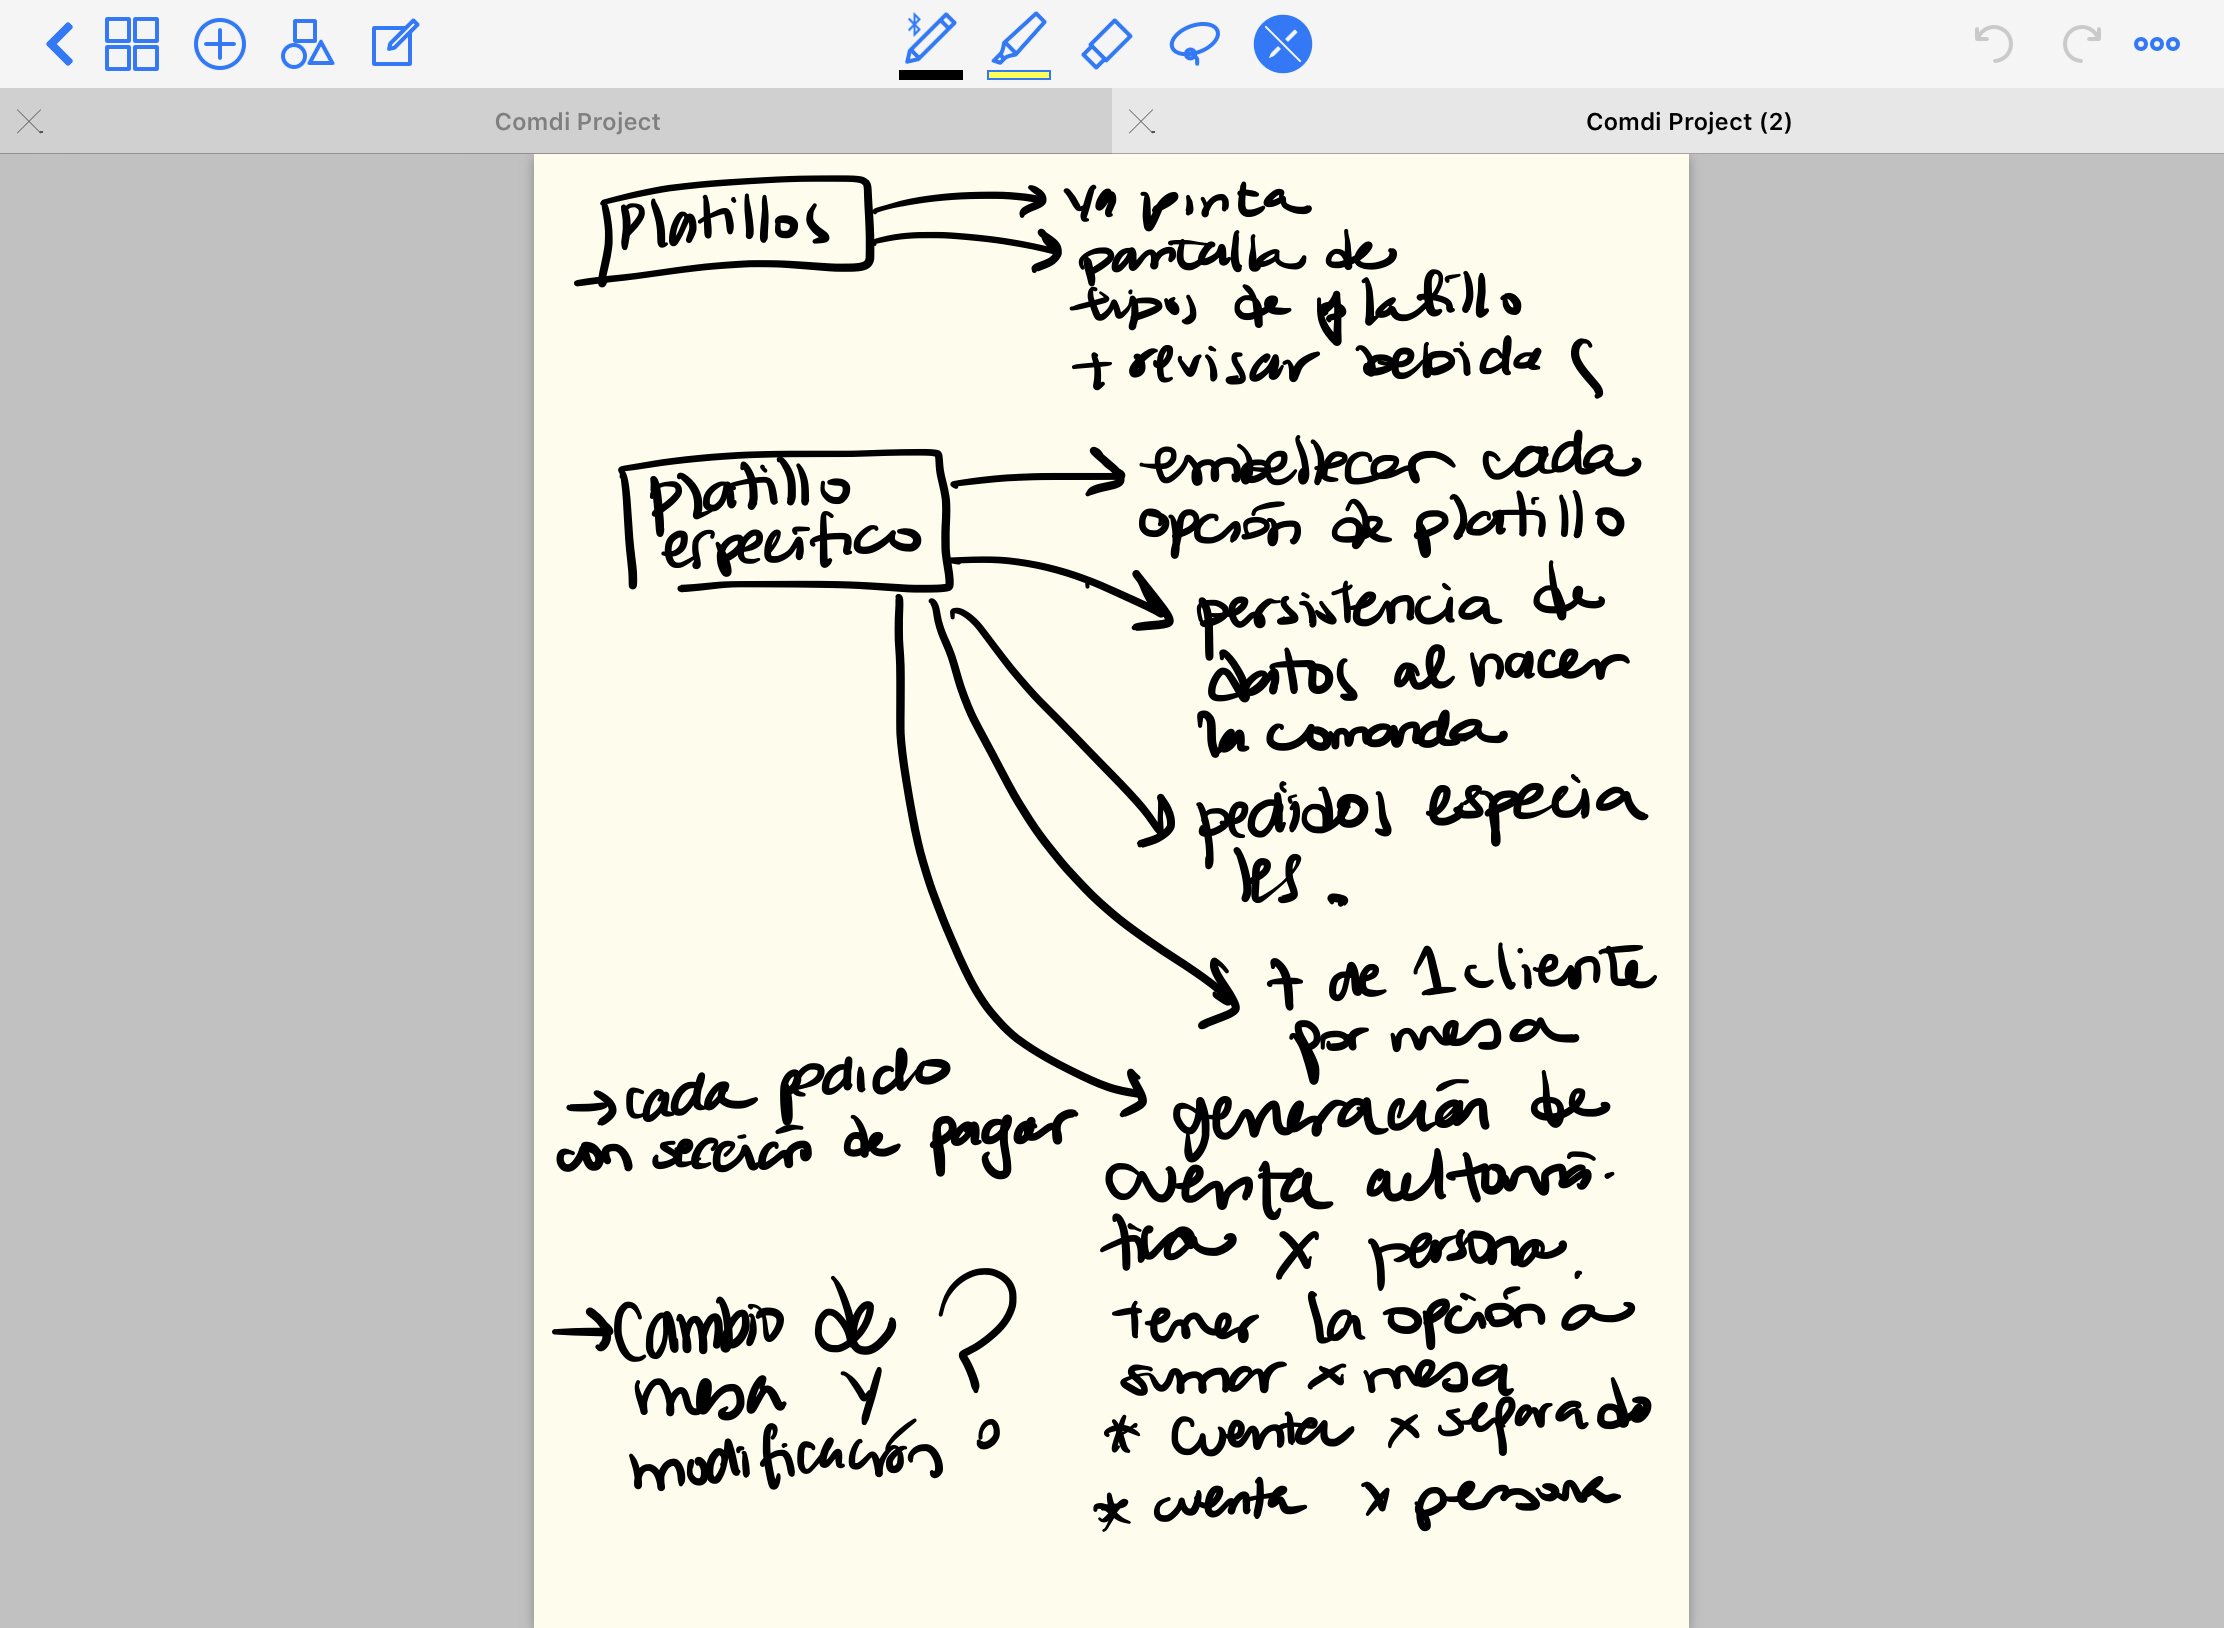 Comdi Project
Comdi Project (2)
Platillos
ya pinta
pantalla de
tipos de platillo
+ revisar bebidas
platillo
específico
embellecer cada
opción de platillo
persistencia de
datos al hacer
la comanda
pedidos especia
les.
+ de 1 cliente
por mesa
generación de
cuenta automá-
tica x persona.
tener la opción a
sumar x mesa
* cuenta x separado
* cuenta x persona
→ cada pedido
con sección de pagar
→ Cambio de
mesa y
modificación ?